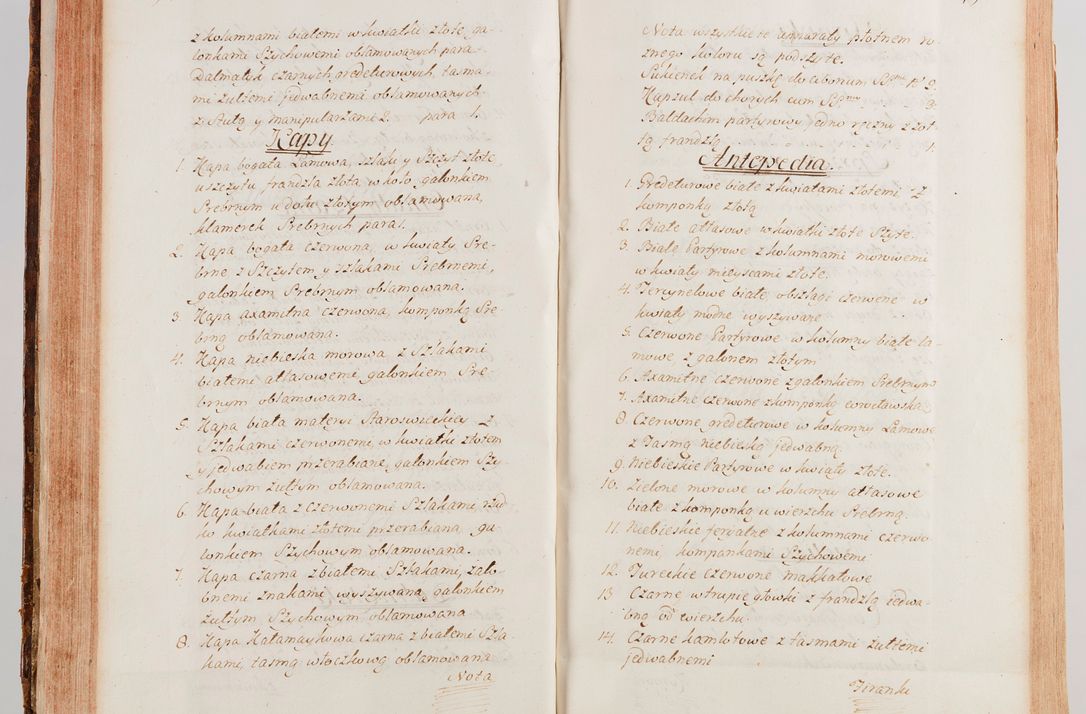 z kolumnami białemi w kwiatki złote, ga-
lonkami Szychowemi oblamowanych para
Dalmatyk czarnych gredeturowych, tasma-
mi żułtemi jedwabnemi oblamowanych
z Stułą y manipularzami 2. para 1.
Kapy
1. Kapa bogata Lamowa, szlaki y Szczyt złote,
u szczytu frandzla złota, w koło galonkiem
Srebrnym u dołu złotym oblamowana,
klamerek Srebrnych para 1.
2. Kapa bogata czerwona, w kwiaty Sre-
brne z Szczytem y szlakami Srebrnemi,
galonkiem Srebrnym oblamowana.
3 Kapa axamitna czerwona, komponką Sre-
brną oblamowana.
4. Kapa niebieska morowa z Szlakami
białemi atłasowemi galonkiem Sre-
brnym oblamowana.
5. Kapa biała materyi Staroswieckiey z
Szlakami czerwonemi, w kwiatki złotem
y jedwabiem przerabiane, galonkiem Szy-
chowym żułtym oblamowana.
6 Kapa biała z czerwonemi Szlakami,
w kwiatkami złotemi przerabiana, ga-
lonkiem Szychowym oblamowana.
7. Kapa czarna z białemi Szlakami, żało-
bnemi znakami wyszywana, galonkiem
żułtym Szychowym oblamowana
8. Kapa Kałamaykowa czarna z białemi Szla-
kami, tasmą włoczkową oblamowana
Nota
Nota wszystkie te apparaty płotnem ro-
znego koloru są podszyte.
Sukienek na puszkę do Ciborium No 9.
Kapzul do chorych cum 3.
Baldachim partyrowy jedno ręczny z żoł-
tą frandzlą 1.
Antepedia.
1. Gredeturowe białe z kwiatami złotemi z
komponką złotą
2. Białe atłasowe w kwiatki złote Szyte.
3. Białe Partyrowe z kolumnami morowemi
w kwiaty mieyscami złote.
4. Tercynelowe białe, obszlagi czerwone w
kwiaty modne wyszywane
5. Czerwone Partyrowe w kolumny białe la-
mowe z galonem złotym
6. Axamitne czerwone z galonkiem Srebrnym
7. Axamitne czerwone z komponką
8 Czerwone gredeturowe w kolumny Lamowe
z Tasmą niebieską jedwabną.
9. Niebieskie Partyrowe w kwiaty złote.
10. Zielone morowe w kolumny atłasowe
białe z komponką u wierzchu Srebrną.
11. Niebieskie ferialne z kolumnami czerwo-
nemi, kompankami Szychowemi
12. Tureckie czerwone makkatowe
13 Czarne w trupie głowki z frandzlą jedwa-
bną od wierzchu.
14. Czarne kamlotowe z tasmami żułtemi
jedwabnemi
Firanki